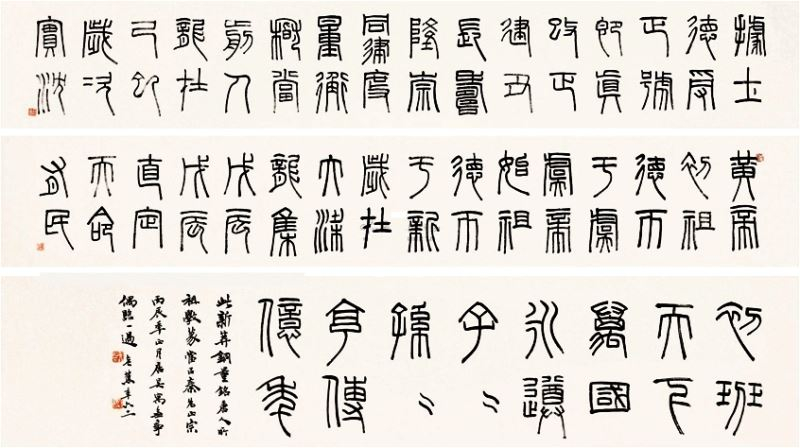 據土
德受
正號
即真
改正
建丑
長壽
隆崇
同律度
量衡
稽當
前人
龍在
己巳
歲次
實沈
黃帝
初祖
德帀
于虞
虞帝
始祖
德帀
于新
歲在
大梁
龍集
戊辰
戊辰
直定
天命
有民
初班
天下
萬國
永遵
子〻
孫〻
亨傳
億年
此新莽銅量銘唐人所
祖數篆當以秦為正宗
丙辰年正月居吳寓無事
偶臨一過